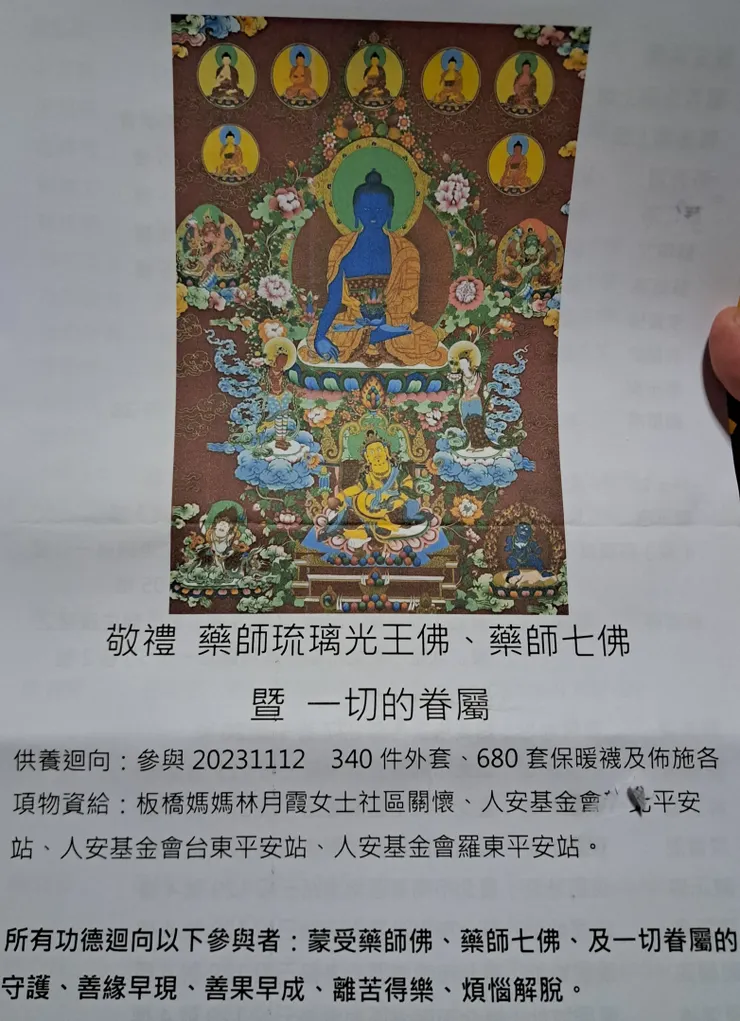 敬禮 藥師琉璃光王佛、藥師七佛
暨 一切的眷屬
供養迴向：參與 20231112 340 件外套、680 套保暖襪及佈施各
項物資給：板橋媽媽林月霞女士社區關懷、人安基金會平安
站、人安基金會台東平安站、人安基金會羅東平安站。
所有功德迴向以下參與者：蒙受藥師佛、藥師七佛、及一切眷屬的
守護、善緣早現、善果早成、離苦得樂、煩惱解脫。